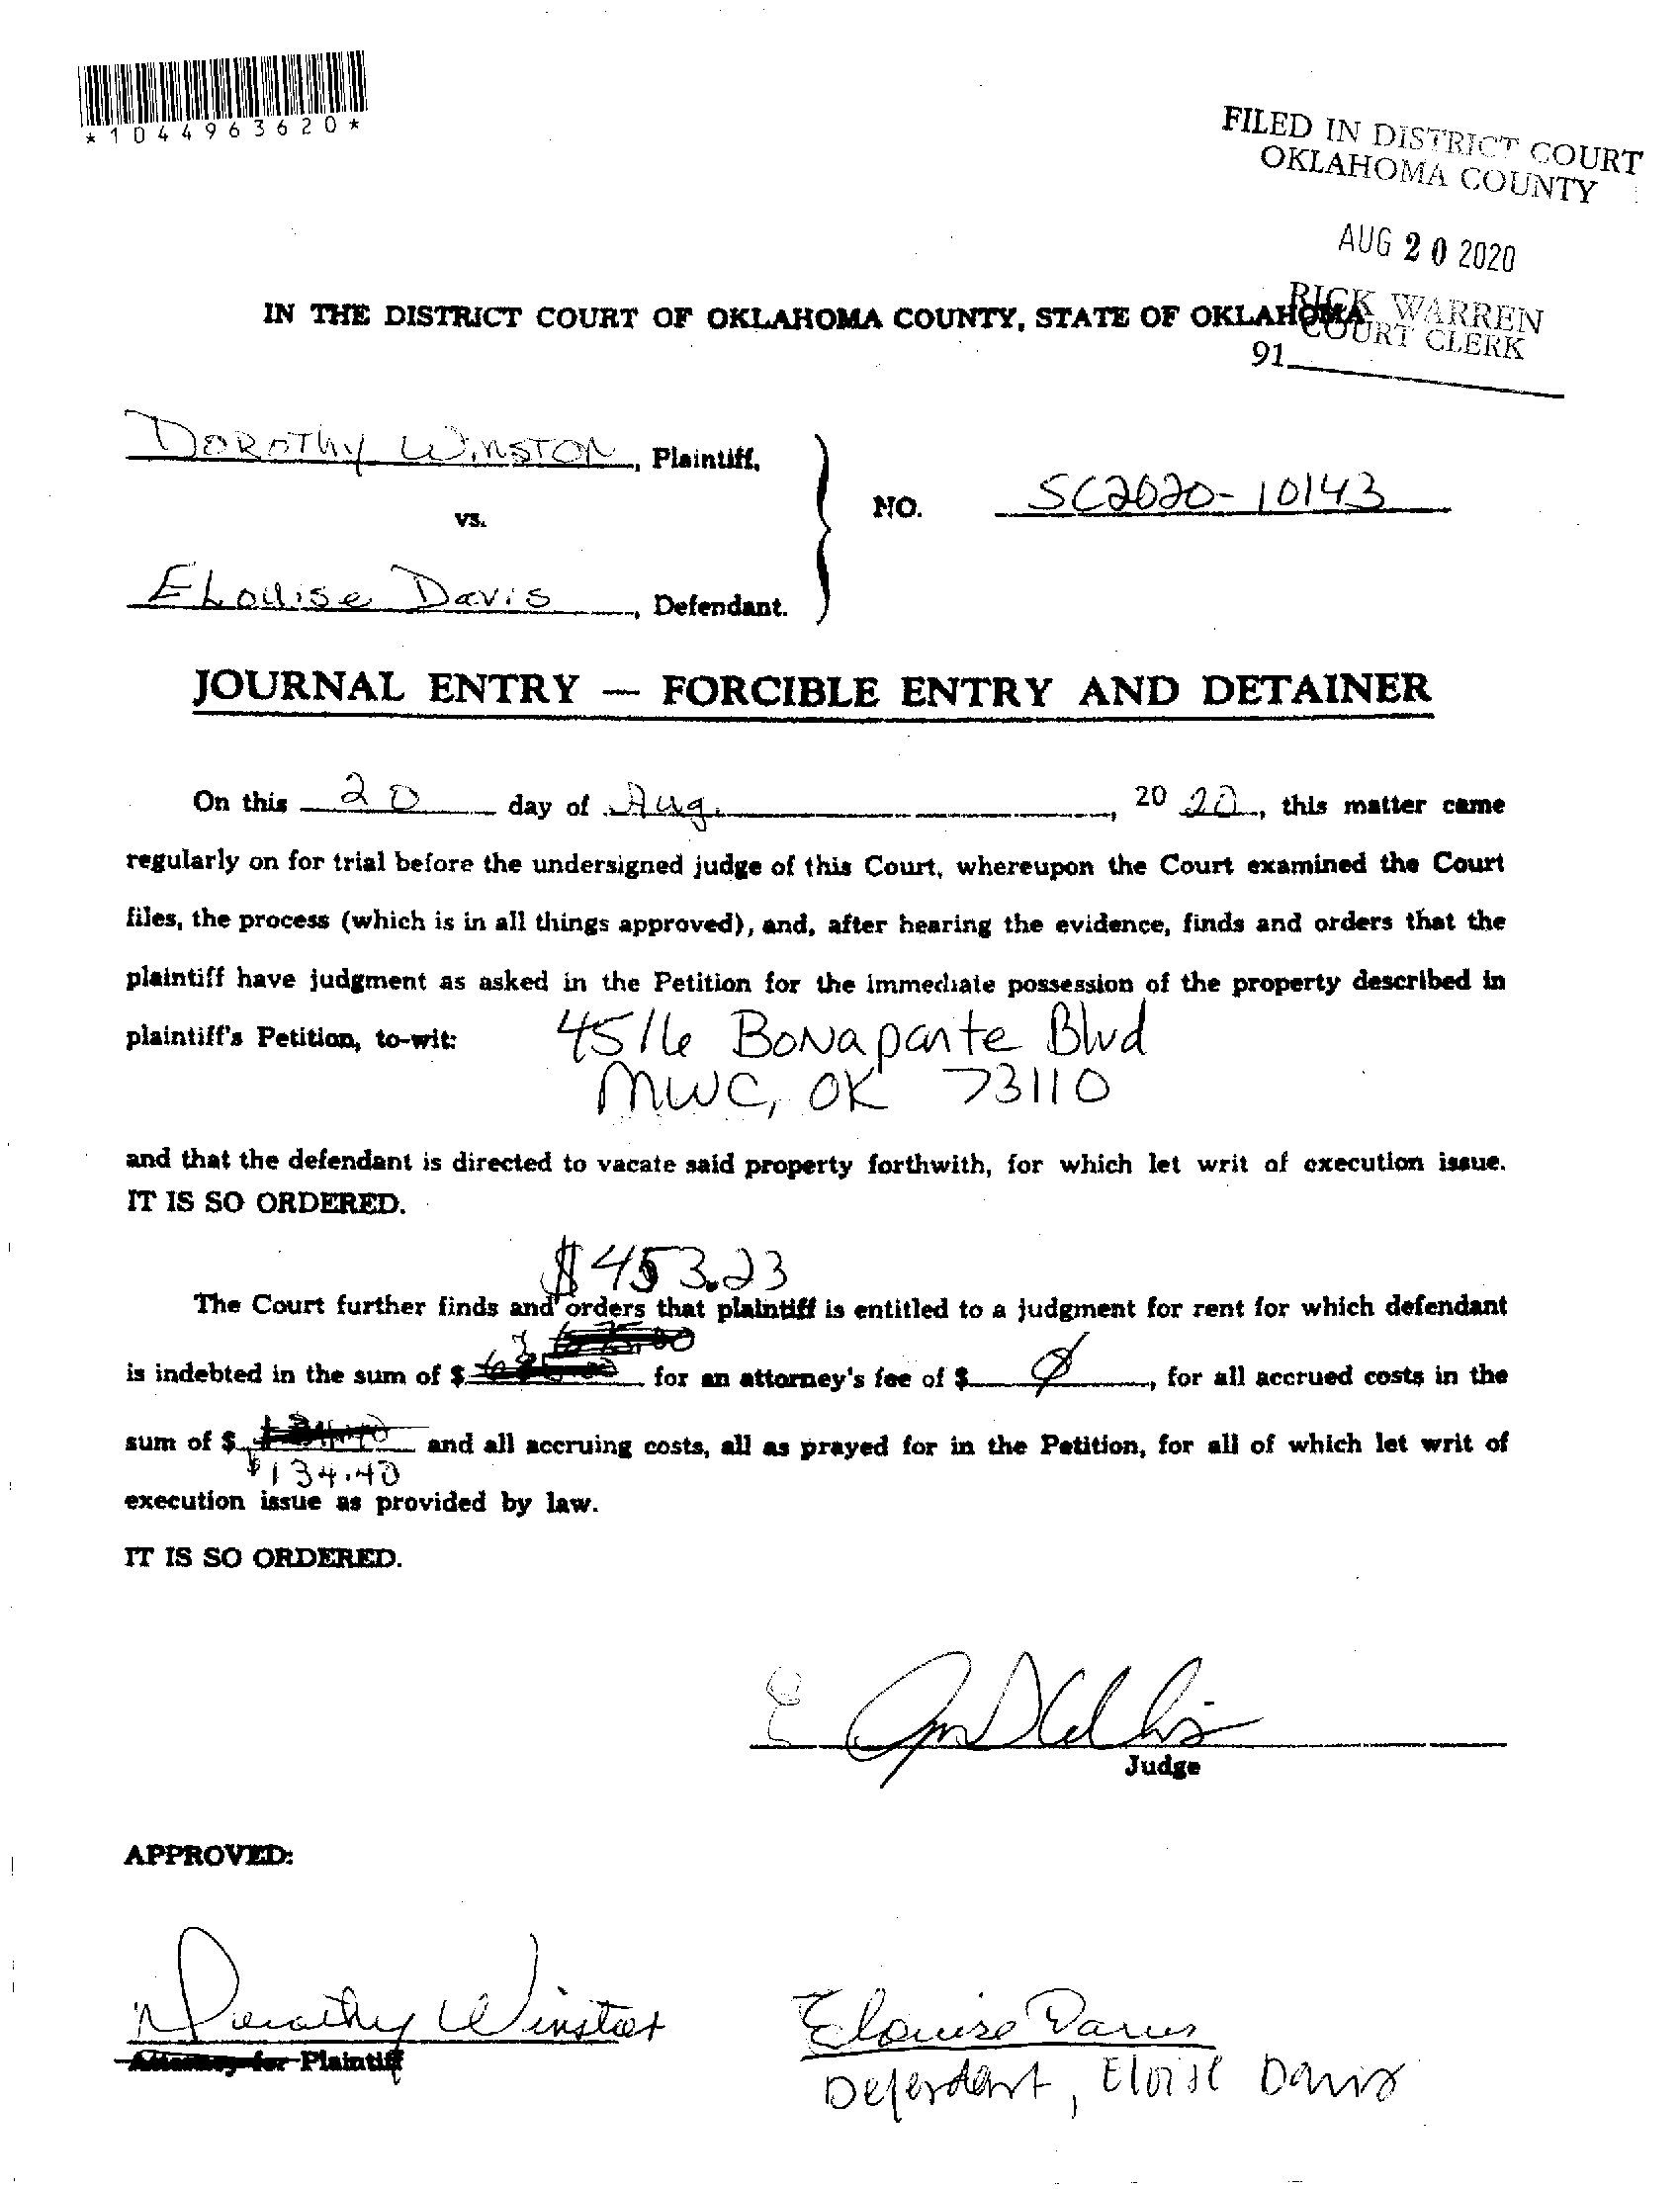 *1044963620*
FILED IN DISTRICT COURT
OKLAHOMA COUNTY
AUG 20 2020
RICK WARREN
COURT CLERK
91
IN THE DISTRICT COURT OF OKLAHOMA COUNTY, STATE OF OKLAHOMA
DOROTHY WINSTON, Plaintiff,
vs.
NO. SC2020-10143
ELouise Davis, Defendant.
JOURNAL ENTRY — FORCIBLE ENTRY AND DETAINER
On this 20 day of Aug., 20 20, this matter came
regularly on for trial before the undersigned judge of this Court, whereupon the Court examined the Court
files, the process (which is in all things approved), and, after hearing the evidence, finds and orders that the
plaintiff have judgment as asked in the Petition for the immediate possession of the property described in
plaintiff's Petition, to-wit: 4516 Bonaparte Blvd
MWC, OK 73110
and that the defendant is directed to vacate said property forthwith, for which let writ of execution issue.
IT IS SO ORDERED.
$453.23
The Court further finds and orders that plaintiff is entitled to a judgment for rent for which defendant
is indebted in the sum of $ for an attorney's fee of $ Ø, for all accrued costs in the
sum of $ and all accruing costs, all as prayed for in the Petition, for all of which let writ of
$134.40
execution issue as provided by law.
IT IS SO ORDERED.
Judge
APPROVED:
Dorothy Winston
Attorney for Plaintiff
Elouise Davis
Defendant, Eloise Davis